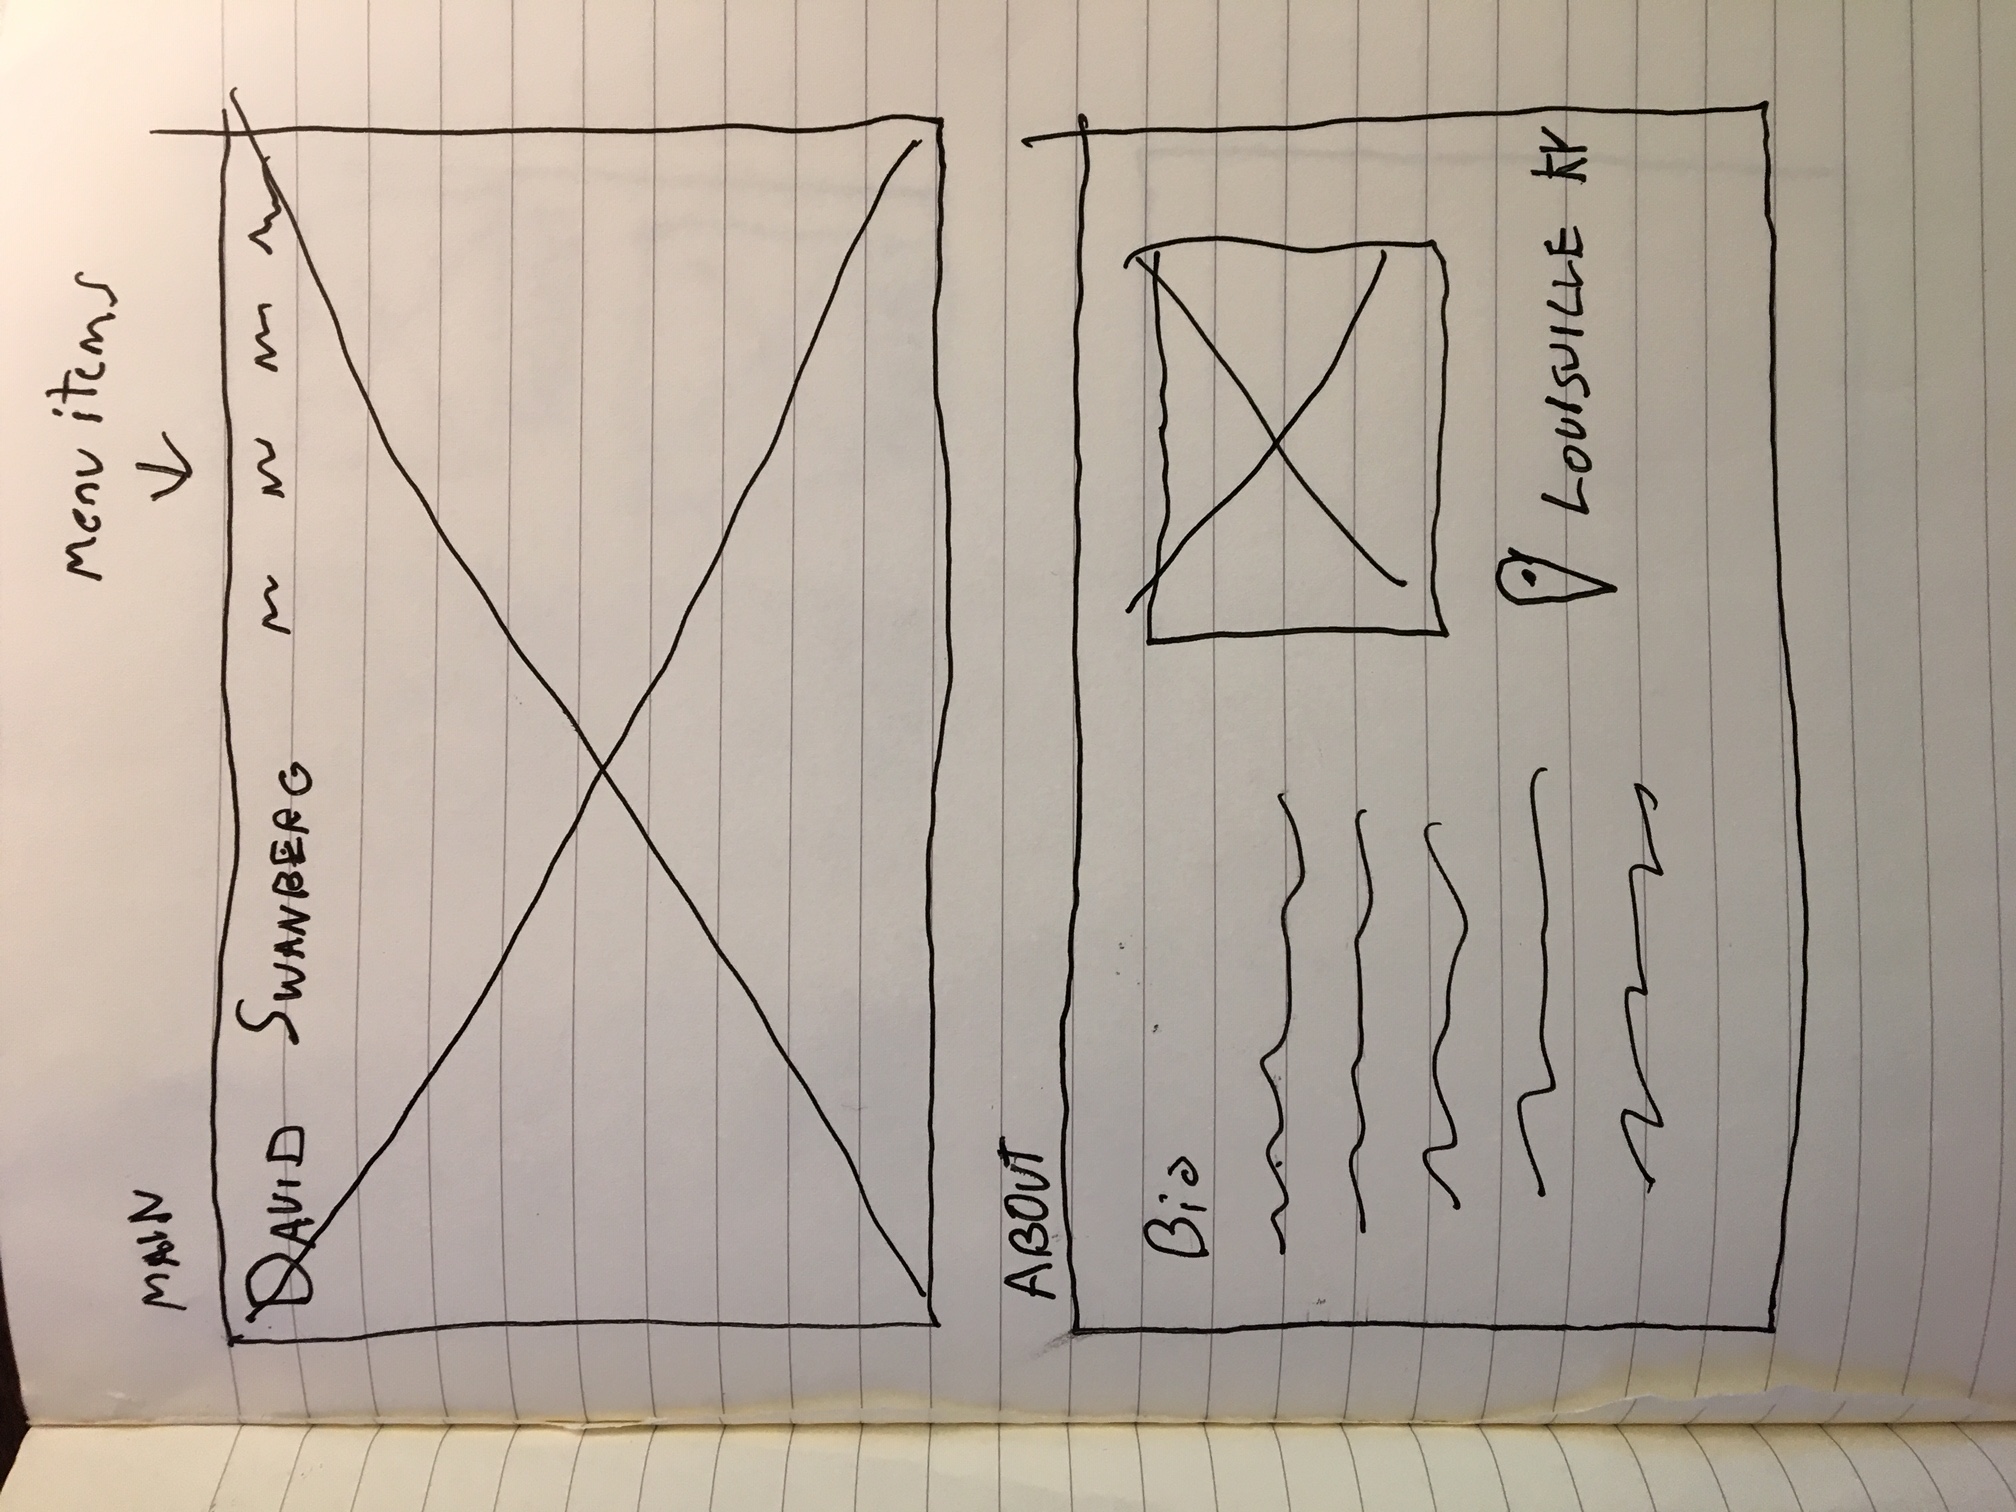 Menu items
MAIN
DAVID SWANBERG
ABOUT
Bio
LOUISVILLE KY